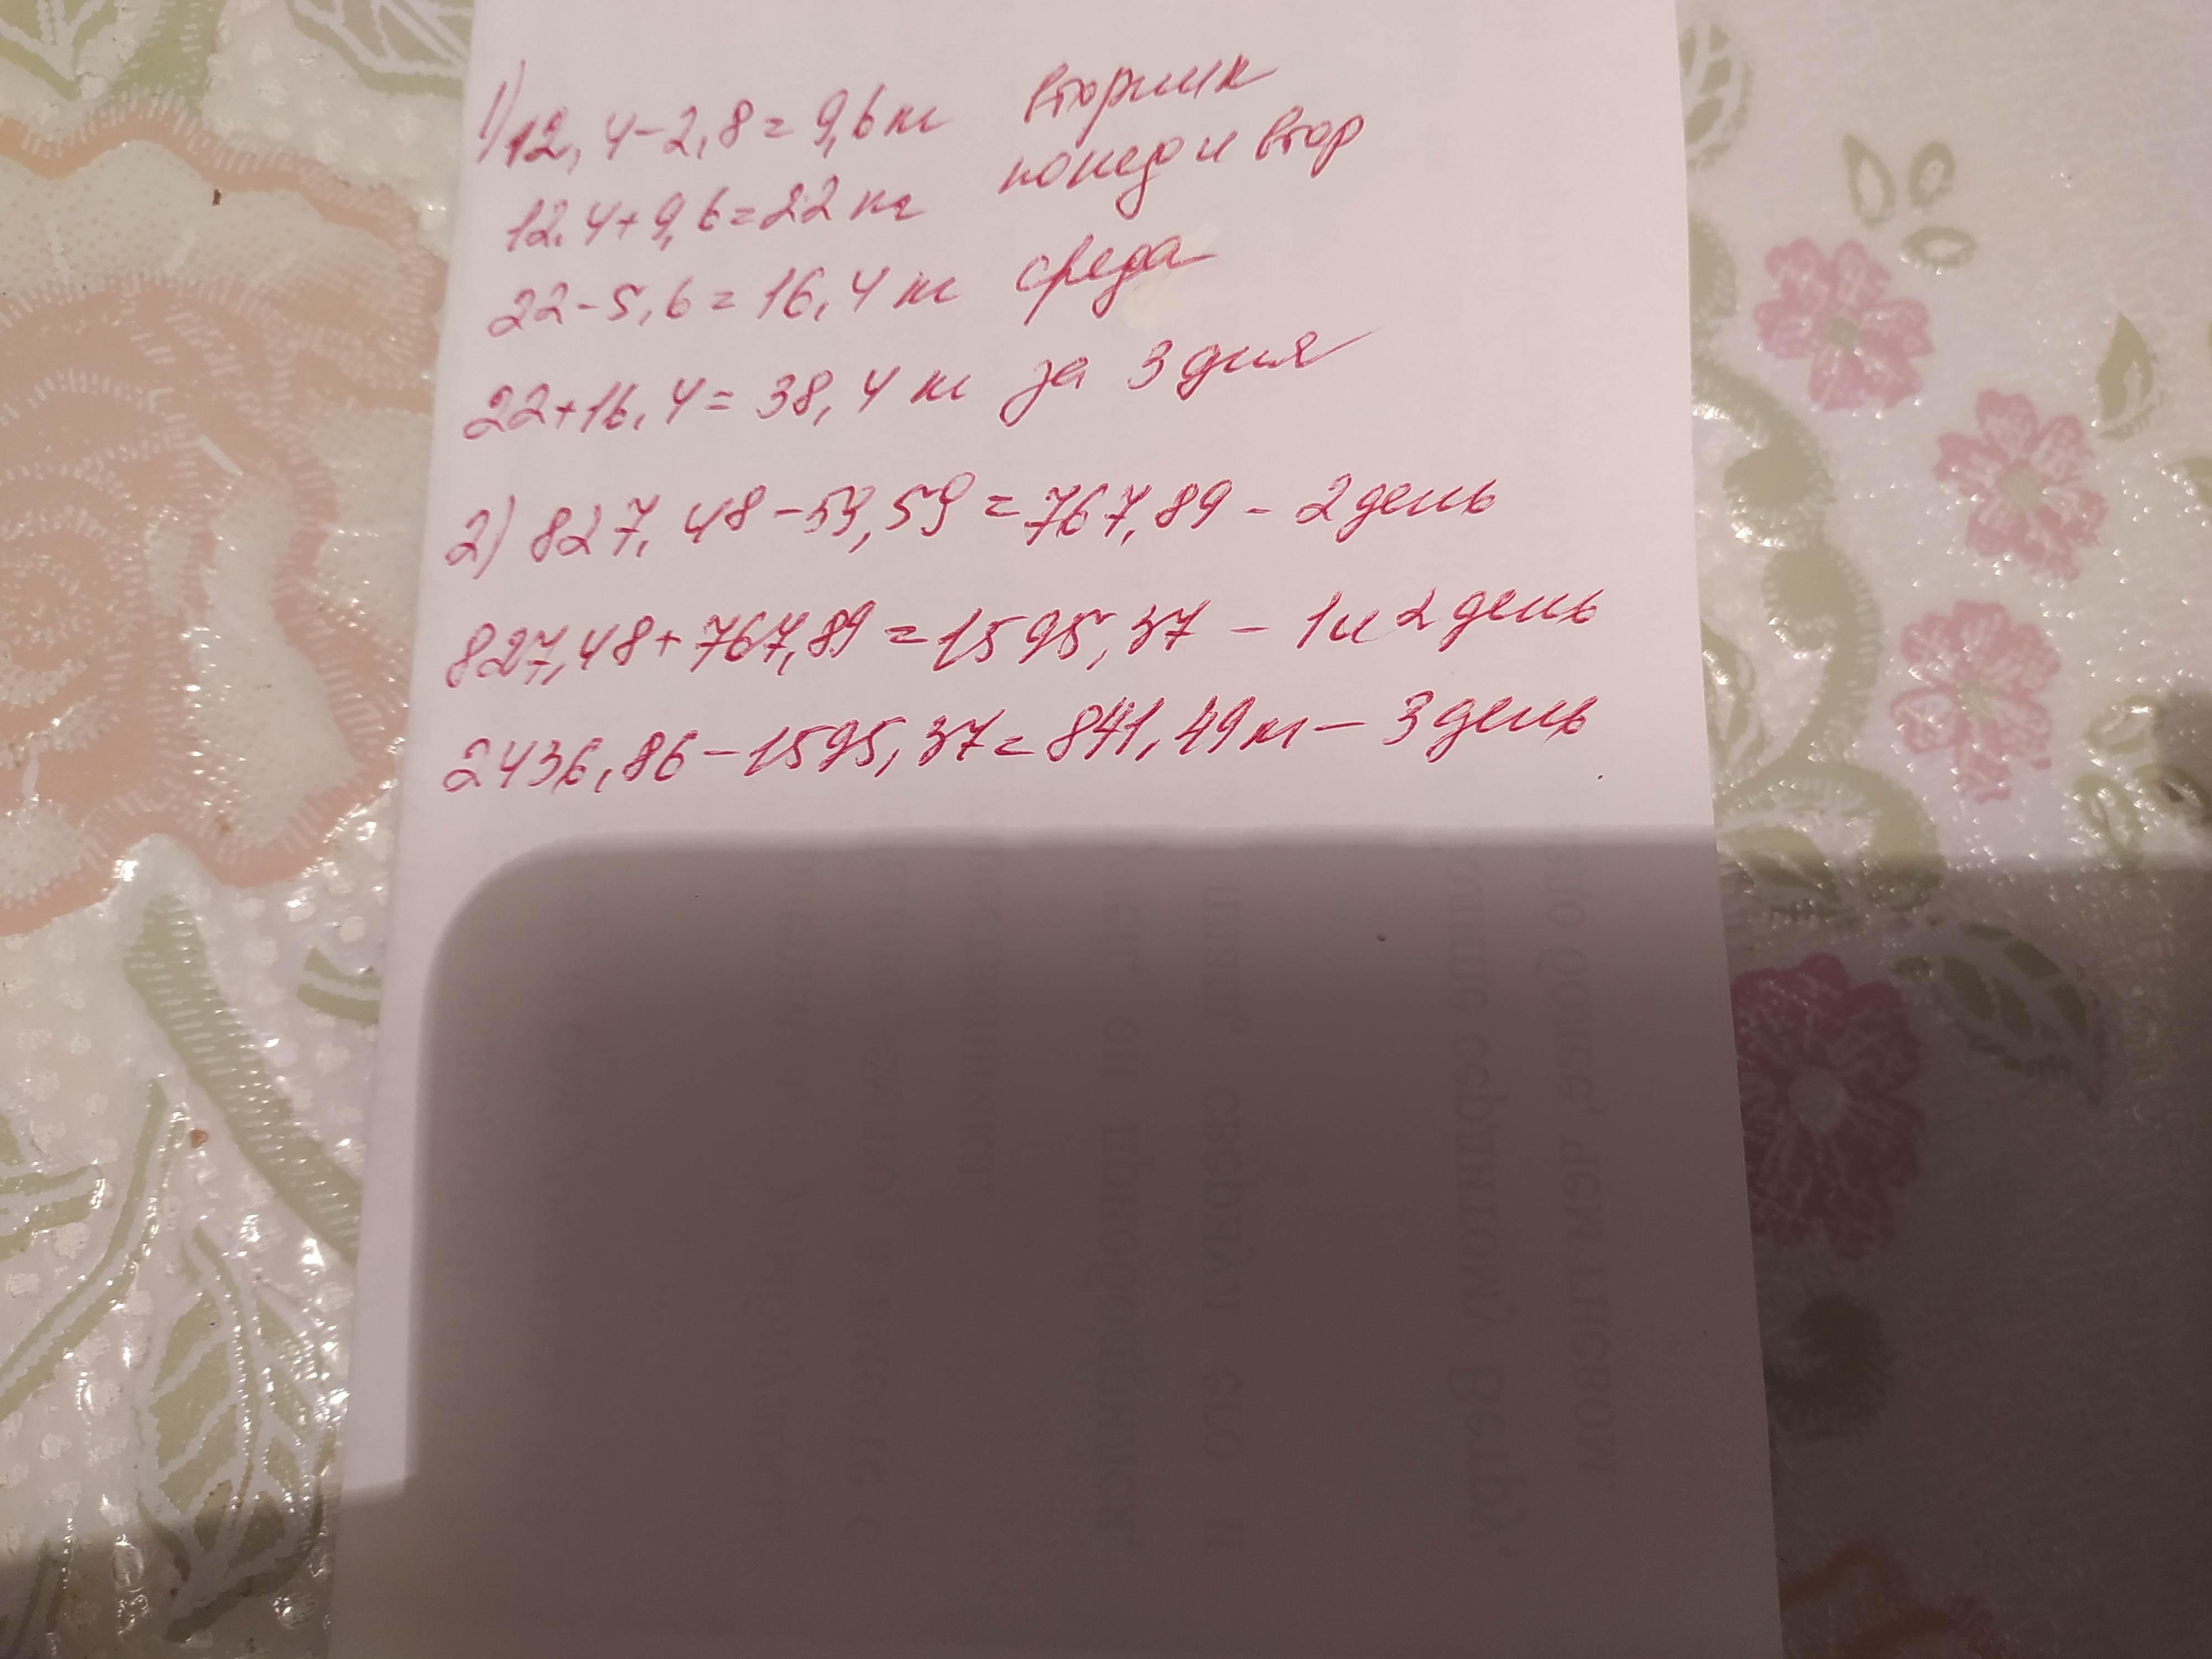 1) 12,4-2,8=9,6 кг вторник
12,4+9,6=22 кг понед и втор
22-5,6=16,4 кг среда
22+16,4=38,4 кг за 3 дня
2) 827,48-59,59=767,89-2 день
827,48+767,89=1595,37-1 и 2 день
2436,86-1595,37=841,49 кг-3 день